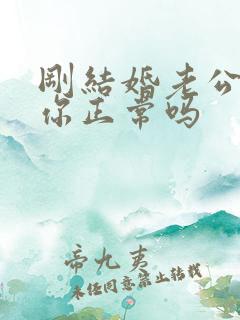 剛結婚老公
你正常吗
帝九夷
未经同意禁止转载